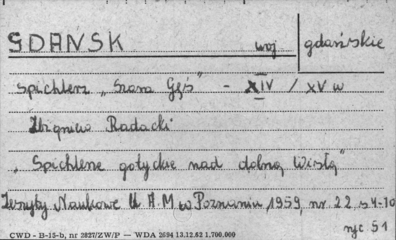 GDAŃSK woj gdańskie
Spichlerz „Szara Gęś" - XIV / XV w
Zbigniew Radacki
„Spichlerze gotyckie nad dolną Wisłą"
Zeszyty Naukowe U A M w Poznaniu 1959, nr 22 s 4-70
ryc 51
CWD - B-15-b, nr 2827/ZW/P — WDA 2694 13.12.62 1,700,000